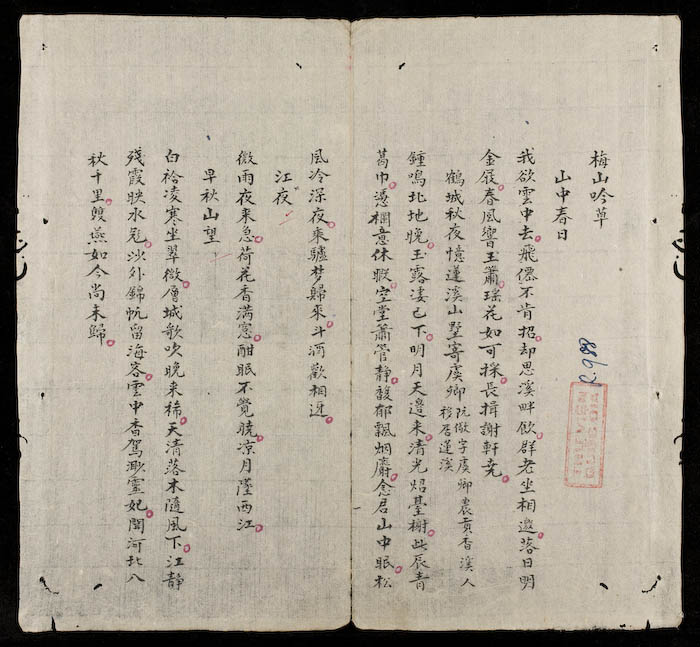 梅山吟草
山中春日
我欲雲中去飛僊不肯招却思溪畔飲群老坐相邀落日明
金屐春風響玉簫瑤花如可採長揖謝軒堯
鶴城秋夜憶蓮溪山墅寄虞卿 阮儆字虞卿農貢香溪人
移居蓮溪
鍾鳴北地晚玉露淒已下明月天邉来清光炤臺榭此辰青
葛巾憑欄意休暇空堂蕭管静馥郁飄烟麝念君山中眠松
風冷深夜乘驢梦歸來斗酒歡相迓
江夜
微雨夜来急荷花香满窓酣眠不覺曉凉月墮西江
早秋山望
白袷凌寒坐翠微層城歌吹晚来稀天清落木隨風下江静
残霞映水飛沙外錦帆留海客雲中香駕渺靈妃関河北八
秋千里雙燕如今尚未歸
R.988